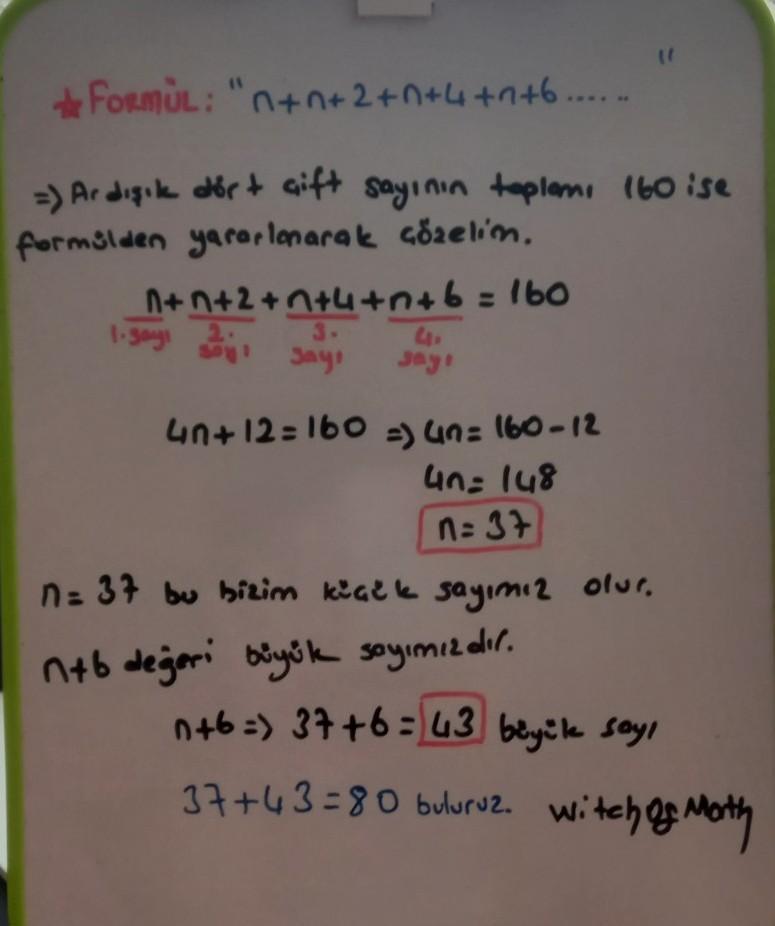 ★ FORMÜL: "n+n+2+n+4+n+6......."
=> Ardışık dört çift sayının toplamı 160 ise
formülden yararlanarak çözelim.
n+n+2+n+4+n+6=160
1.sayı 2. sayı 3. sayı 4. sayı
4n+12=160 => 4n=160-12
4n=148
n=37
n=37 bu bizim küçük sayımız olur.
n+6 değeri büyük sayımızdır.
n+6=> 37+6=43 büyük sayı
37+43=80 buluruz. Witch Of Math